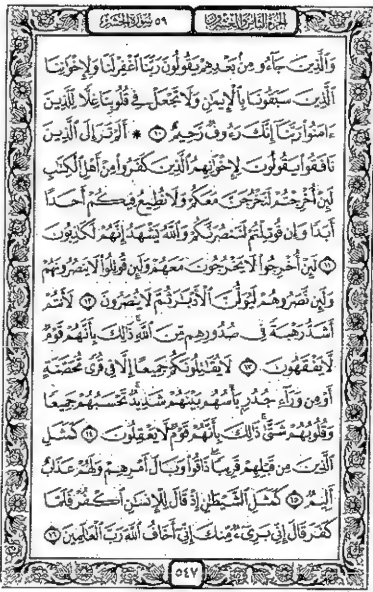 الجزء الثامن والعشرون ٥٩ سورة الحشر
وَالَّذِينَ جَاءُو مِنْ بَعْدِهِمْ يَقُولُونَ رَبَّنَا اغْفِرْ لَنَا وَلِإِخْوَانِنَا
الَّذِينَ سَبَقُونَا بِالْإِيمَٰنِ وَلَا تَجْعَلْ فِي قُلُوبِنَا غِلًّا لِّلَّذِينَ
ءَامَنُوا رَبَّنَا إِنَّكَ رَءُوفٌ رَّحِيمٌ ١٠ * أَلَمْ تَرَ إِلَى الَّذِينَ
نَافَقُوا يَقُولُونَ لِإِخْوَٰنِهِمُ الَّذِينَ كَفَرُوا مِنْ أَهْلِ الْكِتَٰبِ
لَئِنْ أُخْرِجْتُمْ لَنَخْرُجَنَّ مَعَكُمْ وَلَا نُطِيعُ فِيكُمْ أَحَدًا
أَبَدًا وَإِن قُوتِلْتُمْ لَنَنصُرَنَّكُمْ وَاللَّهُ يَشْهَدُ إِنَّهُمْ لَكَٰذِبُونَ
١١ لَئِنْ أُخْرِجُوا لَا يَخْرُجُونَ مَعَهُمْ وَلَئِن قُوتِلُوا لَا يَنصُرُونَهُمْ
وَلَئِن نَّصَرُوهُمْ لَيُوَلُّنَّ الْأَدْبَٰرَ ثُمَّ لَا يُنصَرُونَ ١٢ لَأَنتُمْ
أَشَدُّ رَهْبَةً فِي صُدُورِهِم مِّنَ اللَّهِ ذَٰلِكَ بِأَنَّهُمْ قَوْمٌ
لَّا يَفْقَهُونَ ١٣ لَا يُقَٰتِلُونَكُمْ جَمِيعًا إِلَّا فِي قُرًى مُّحَصَّنَةٍ
أَوْ مِن وَرَاءِ جُدُرٍ بَأْسُهُم بَيْنَهُمْ شَدِيدٌ تَحْسَبُهُمْ جَمِيعًا
وَقُلُوبُهُمْ شَتَّىٰ ذَٰلِكَ بِأَنَّهُمْ قَوْمٌ لَّا يَعْقِلُونَ ١٤ كَمَثَلِ
الَّذِينَ مِن قَبْلِهِمْ قَرِيبًا ذَاقُوا وَبَالَ أَمْرِهِمْ وَلَهُمْ عَذَابٌ
أَلِيمٌ ١٥ كَمَثَلِ الشَّيْطَٰنِ إِذْ قَالَ لِلْإِنسَٰنِ اكْفُرْ فَلَمَّا
كَفَرَ قَالَ إِنِّي بَرِيءٌ مِّنكَ إِنِّي أَخَافُ اللَّهَ رَبَّ الْعَٰلَمِينَ ١٦
٥٤٧